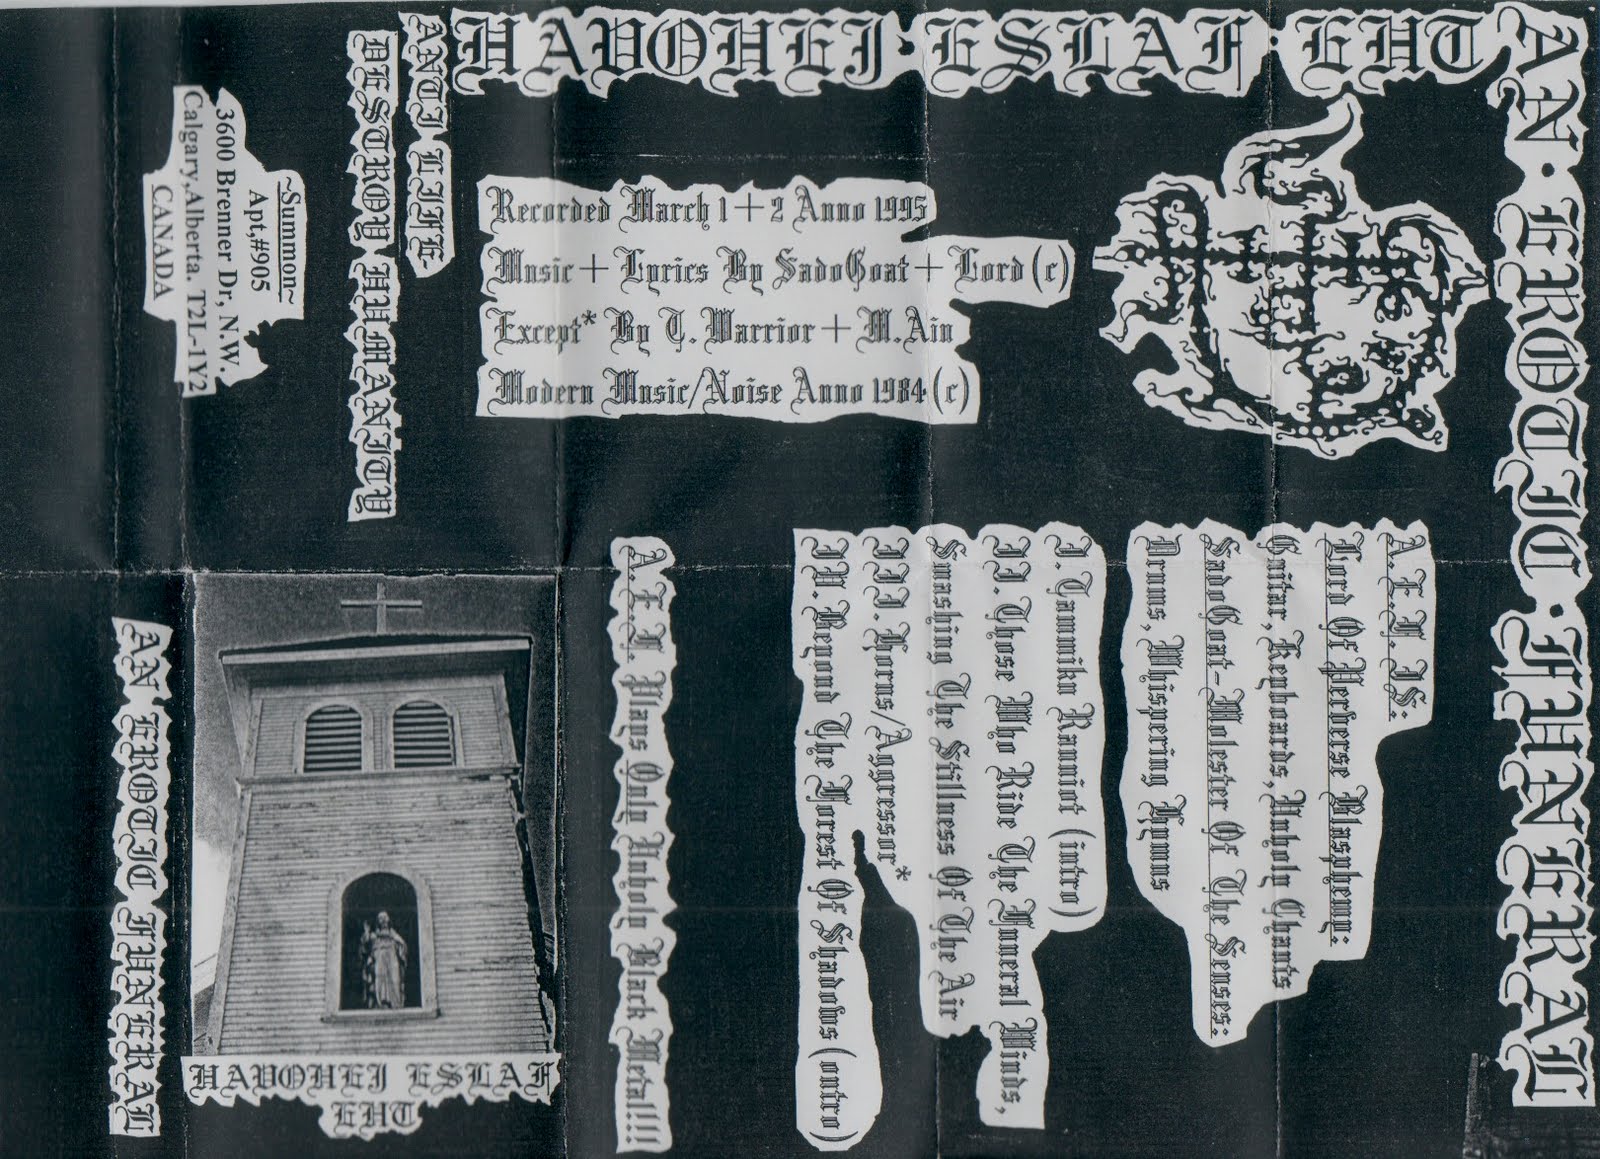 AN·EROTIC·FUNERAL
HAVOHEJ·ESLAF·EHT
A.E.F. IS:
Lord Of Perverse Blasphemy:
Guitar, Keyboards, Unholy Chants
SadoGoat-Molester Of The Senses:
Drums, Whispering Hymns
I. Tammiku Ranniot (intro)
II. Those Who Ride The Funeral Winds,
Smashing The Stillness Of The Air
III. Horns/Aggressor*
IV. Beyond The Forest Of Shadows (outro)
Recorded March 1+2 Anno 1995
Music + Lyrics By SadoGoat + Lord (c)
Except* By T. Warrior + M. Ain
Modern Music/Noise Anno 1984 (c)
A.E.F. Plays Only Unholy Black Metal!!!
ANTI LIFE-
DESTROY HUMANITY
~Summom~
Apt,#905
3600 Brenner Dr, N.W.
Calgary,Alberta. T2L-1Y2
CANADA
HAVOHEJ ESLAF
EHT
AN EROTIC FUNERAL